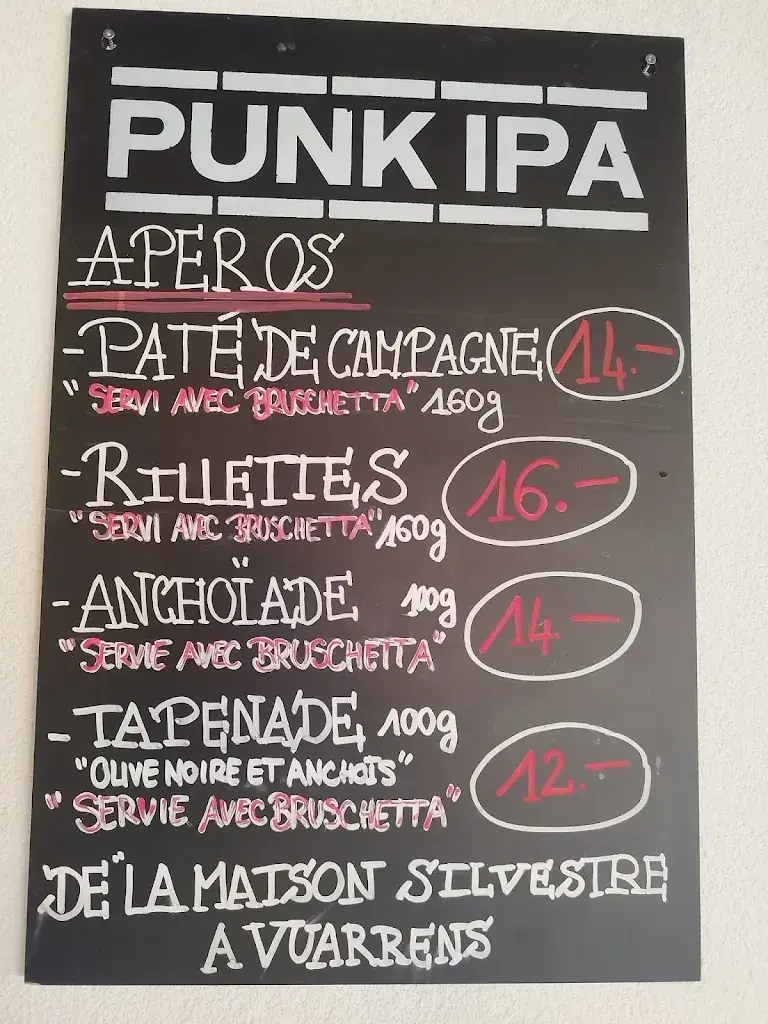 PUNK IPA
APEROS
- PATÉ DE CAMPAGNE 14.-
"SERVI AVEC BRUSCHETTA" 160g
- RILLETTES 16.-
"SERVI AVEC BRUSCHETTA" 160g
- ANCHOÏADE 100g 14.-
"SERVIE AVEC BRUSCHETTA"
- TAPENADE 100g
"OLIVE NOIRE ET ANCHOIS" 12.-
"SERVIE AVEC BRUSCHETTA"
DE "LA MAISON SILVESTRE
A VUARRENS